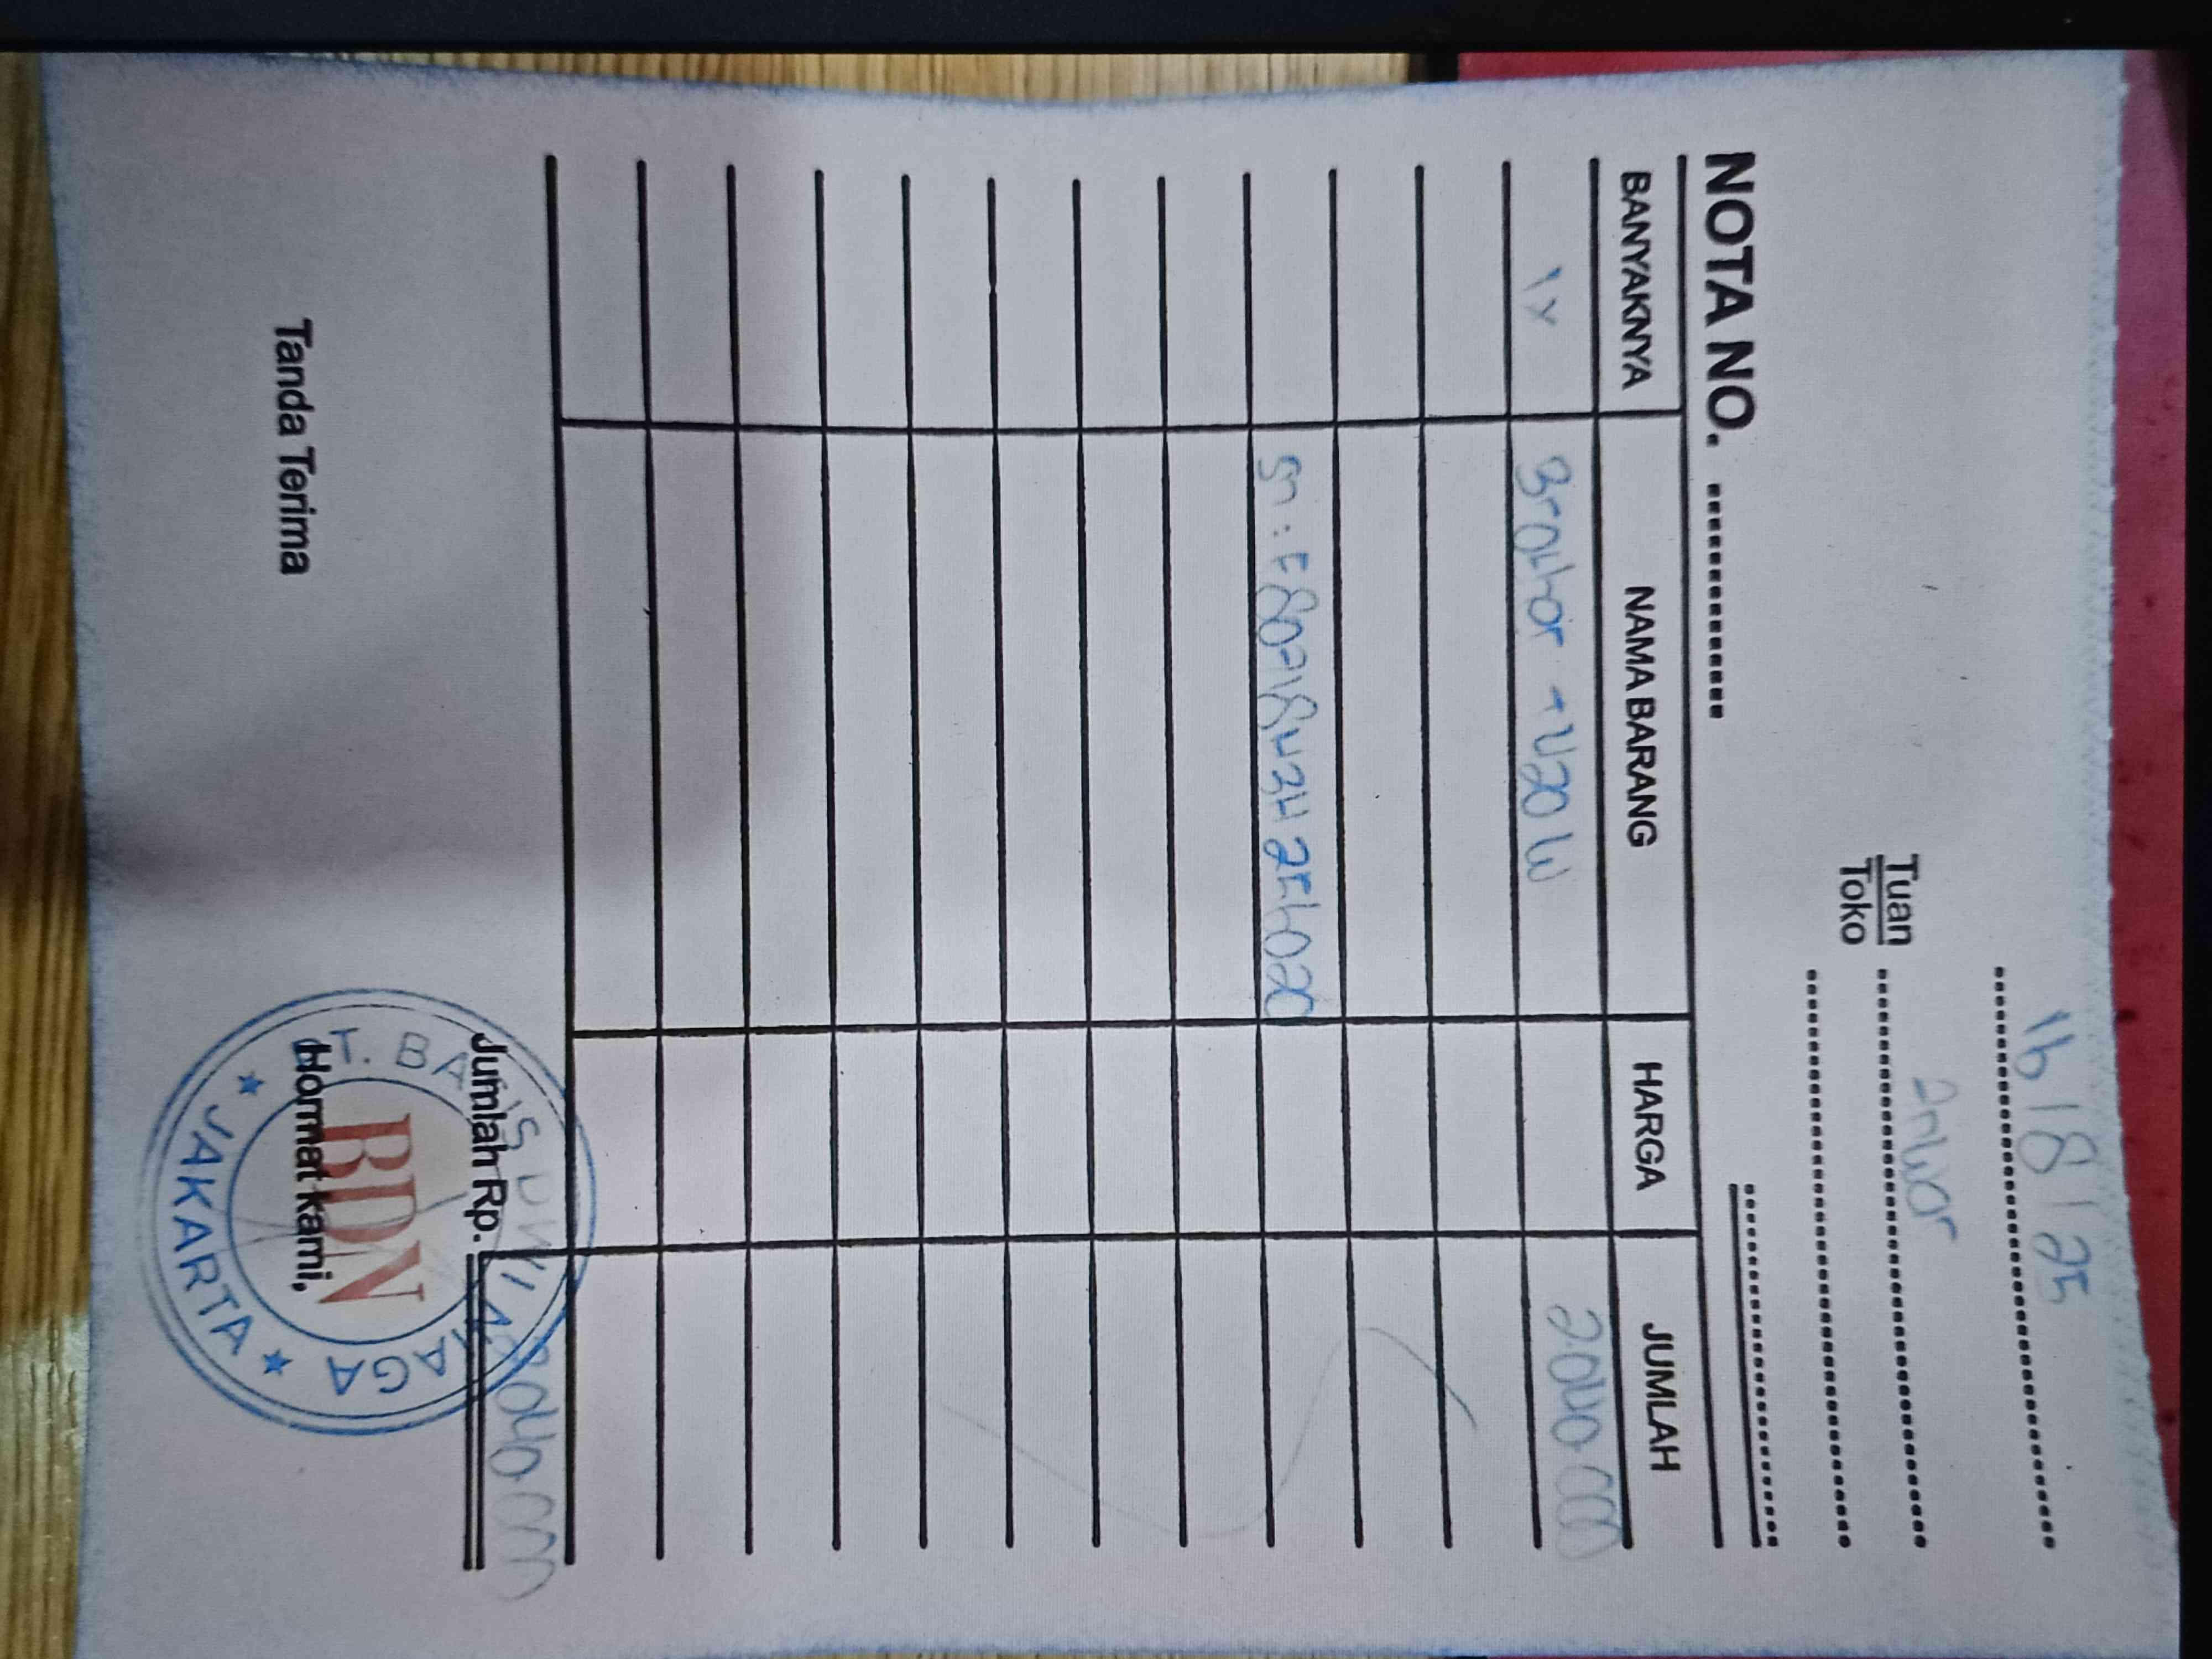 16/8/25
Tuan anwar
Toko
NOTA NO.
BANYAKNYA NAMA BARANG HARGA JUMLAH
1x Brother T420W 2040.000
Sn:
Jumlah Rp. 2040.000
Tanda Terima Hormat kami,
BDN
JAKARTA